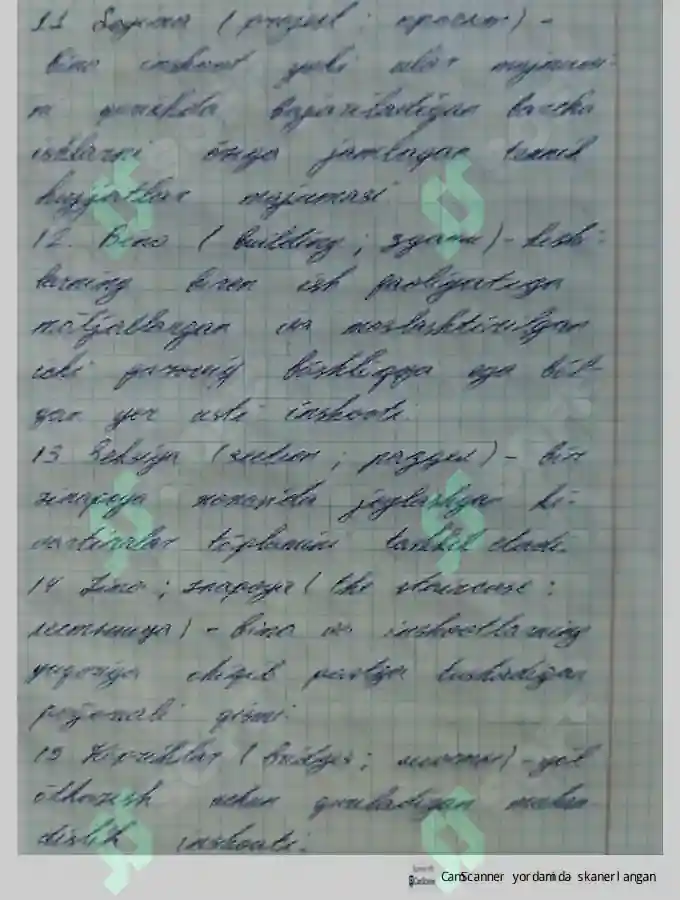 11 Loyixa (project ; проект) -
Bino inshoot yoki ular majmuasi-
ni qurishda bajariladigan barcha
ishlarni õziga jamlagan texnik
hujjatlar majmuasi
12. Bino (building ; здание) - kishi-
larning biron ish faoliyatiga
mõljallangan va moslashtirilgan
ichki bõshliqqa ega bõl-
gan yer usti inshooti.
13 Sektsiya (section ; раздел) - bir
zinapoya yonida joylashgan k-
vartiralar tõplamini tashkil etadi.
14 Zina ; zinapoya (the staircase ;
лестница) - bino va inshootlarning
yuqoriga chiqib pastga tushadigan
pog'onali qismi.
15 Kõpriklar (bridges ; мосты) - yõl
õtkazish uchun quriladigan muhan-
dislik inshooti.
CamScanner yordamida skanerlangan